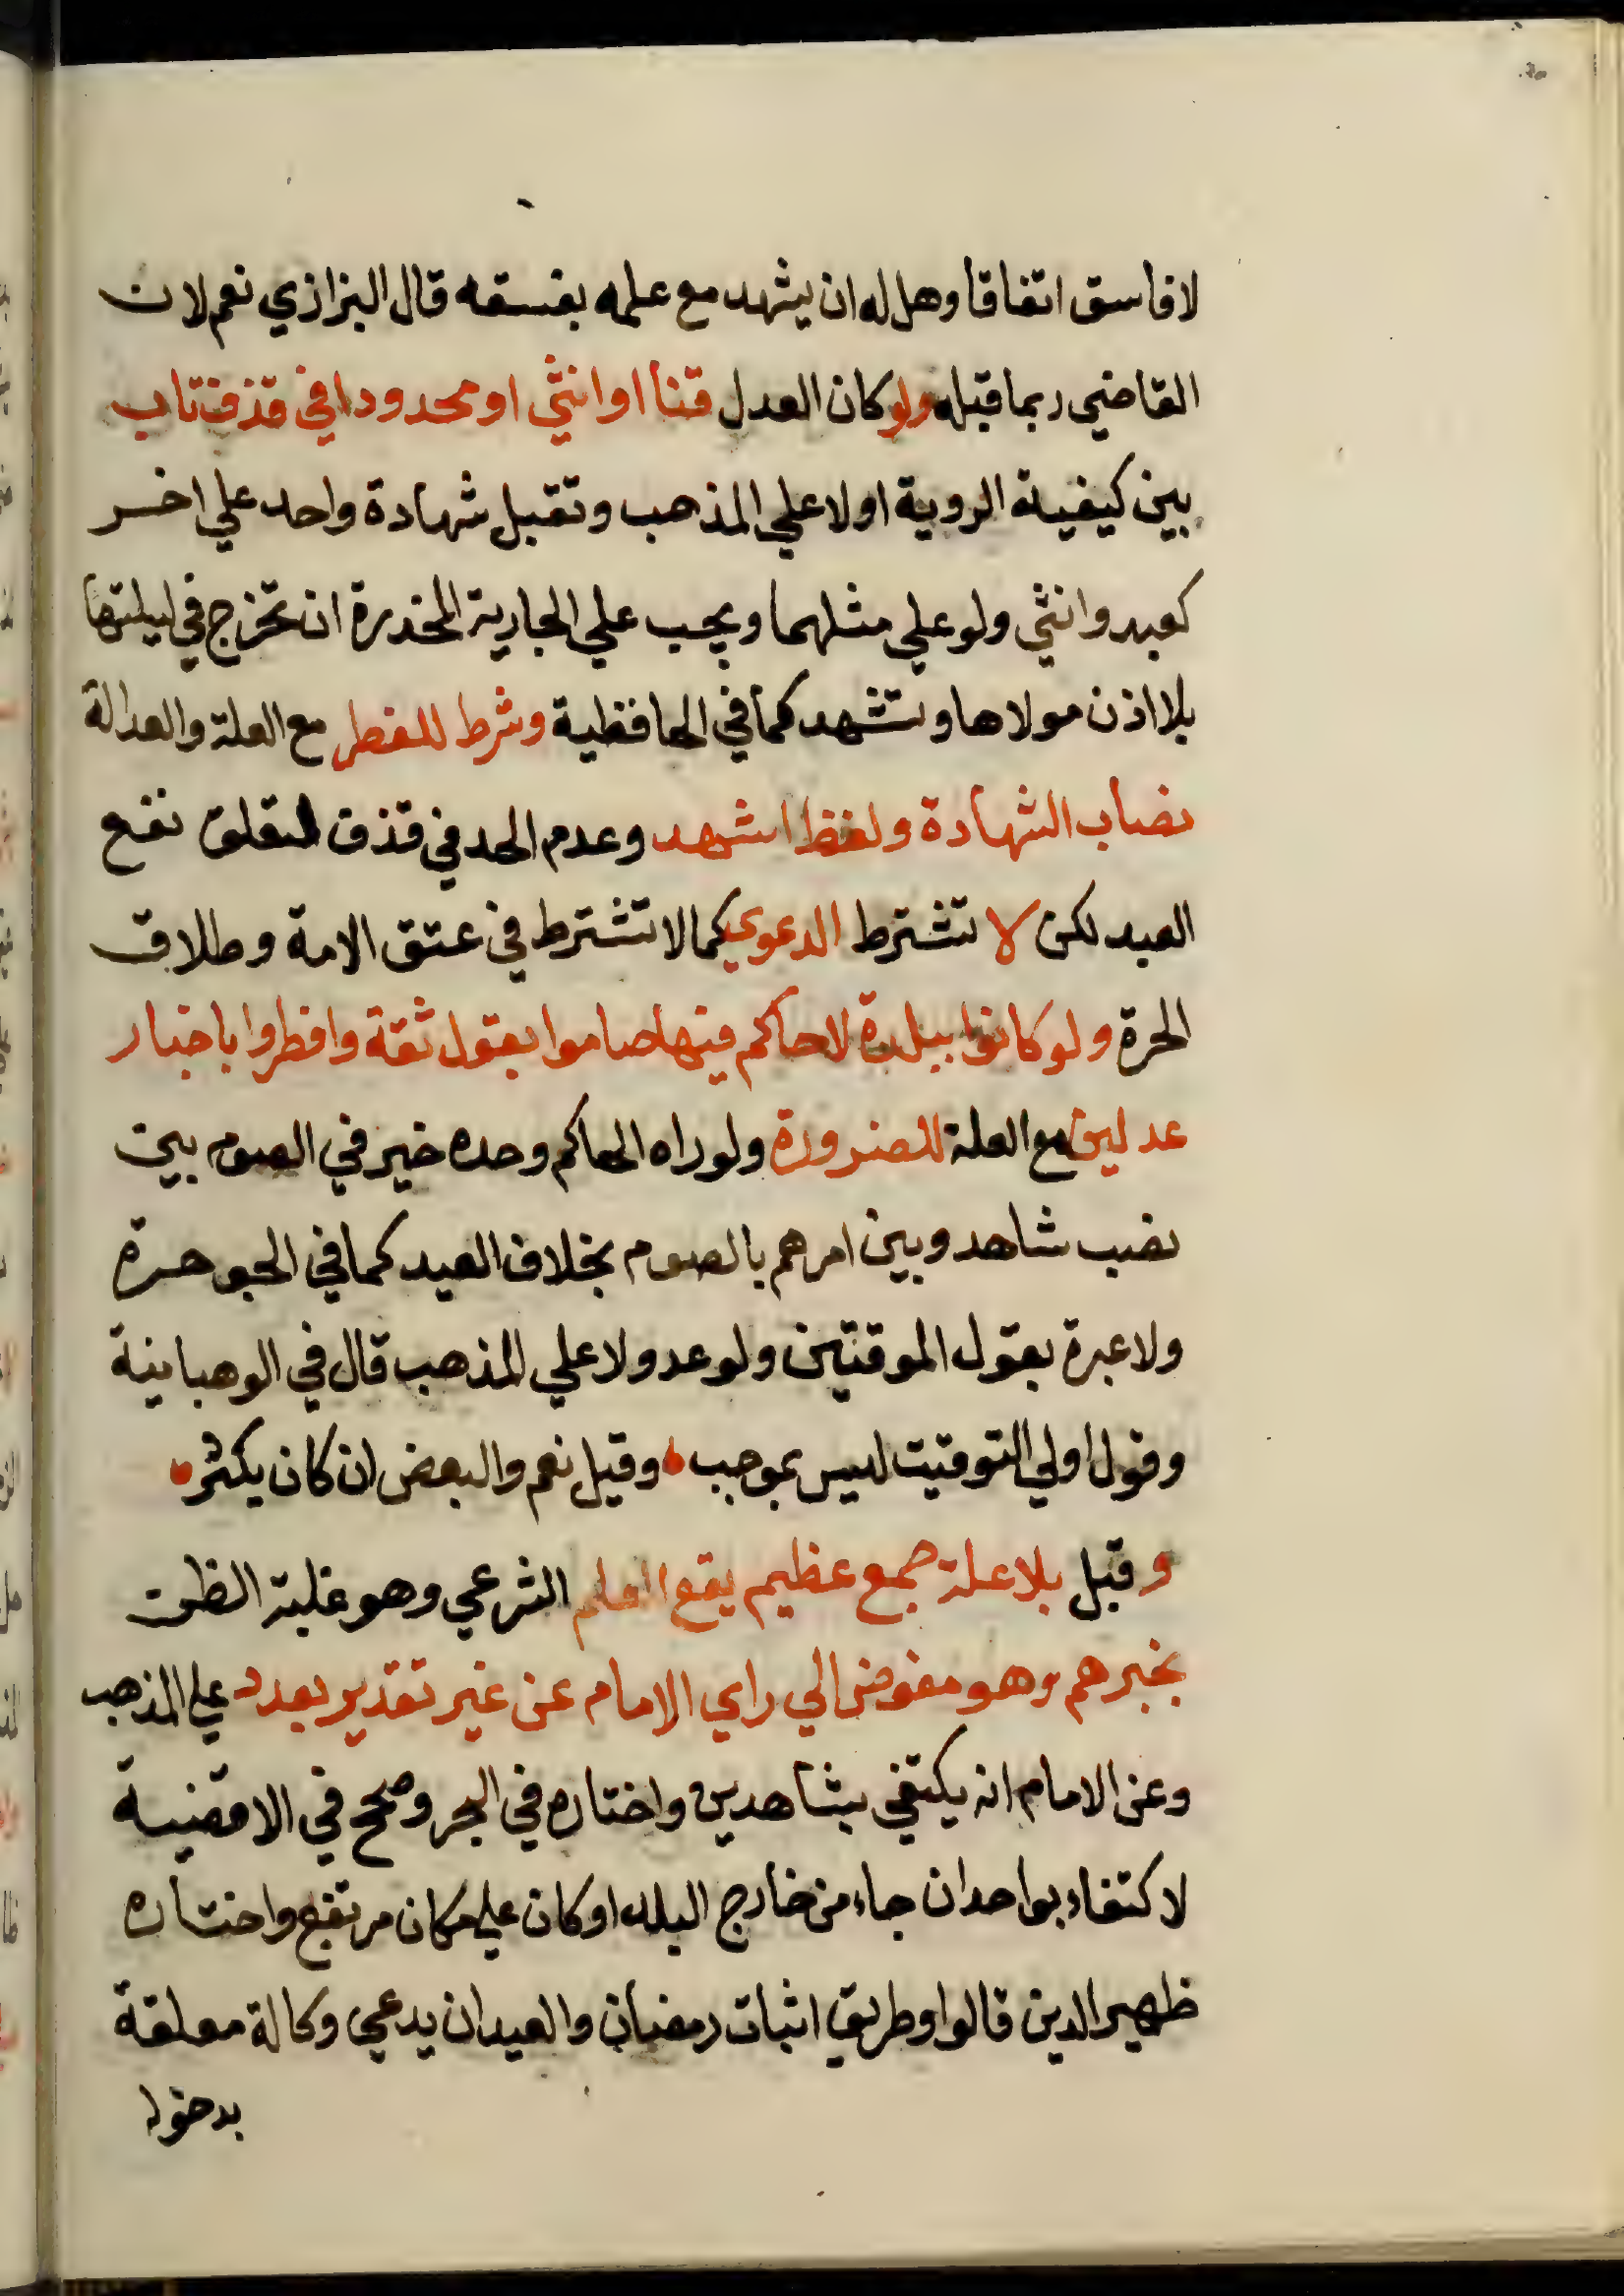 لا فاسق اتفاقا وهل له ان يشهد مع علمه بفسقه قال البزازي نعم لان
القاضي ربما قبله ولو كان العدل قنا او انثي او محدودا في قذف تاب
بين كيفية الروية اولا علي المذهب وتقبل شهادة واحد علي اخر
كعبد وانثي ولو علي مثلهما ويجب علي الجارية المخدرة ان تخرج في ليلتها
بلا اذن مولاها وتشهد كما في الحافظية وشرط للفطر مع العلة والعدالة
نصاب الشهادة ولفظ اشهد وعدم الحد في قذف لتعلق نفع
العبد لكن لا تشترط الدعوي كما لا تشترط في عتق الامة وطلاق
الحرة ولو كانوا ببلدة لا حاكم فيها صاموا بقول ثقة وافطروا باخبار
عدلين مع العلة للضرورة ولو راه الحاكم وحده خير في الصوم بين
نصب شاهد وبين امرهم بالصوم بخلاف العيد كما في الجوهرة
ولا عبرة بقول الموقتين ولو عدولا علي المذهب قال في الوهبانية
وقول اولي التوقيت ليس بموجب وقيل نعم والبعض ان كان يكثر
وقبل بلا علة جمع عظيم يقع العلم الشرعي وهو غلبة الظن
بخبرهم وهو مفوض الي راي الامام عن غير تقدير بعدد علي المذهب
وعن الامام انه يكتفي بشاهدين واختاره في البحر وصحح في الاقضية
لاكتفاء بواحد ان جاء من خارج البلد او كان علي مكان مرتفع واختاره
ظهير الدين قالوا وطريق اثبات رمضان والعيد ان يدعي وكالة معلقة
بدخوله